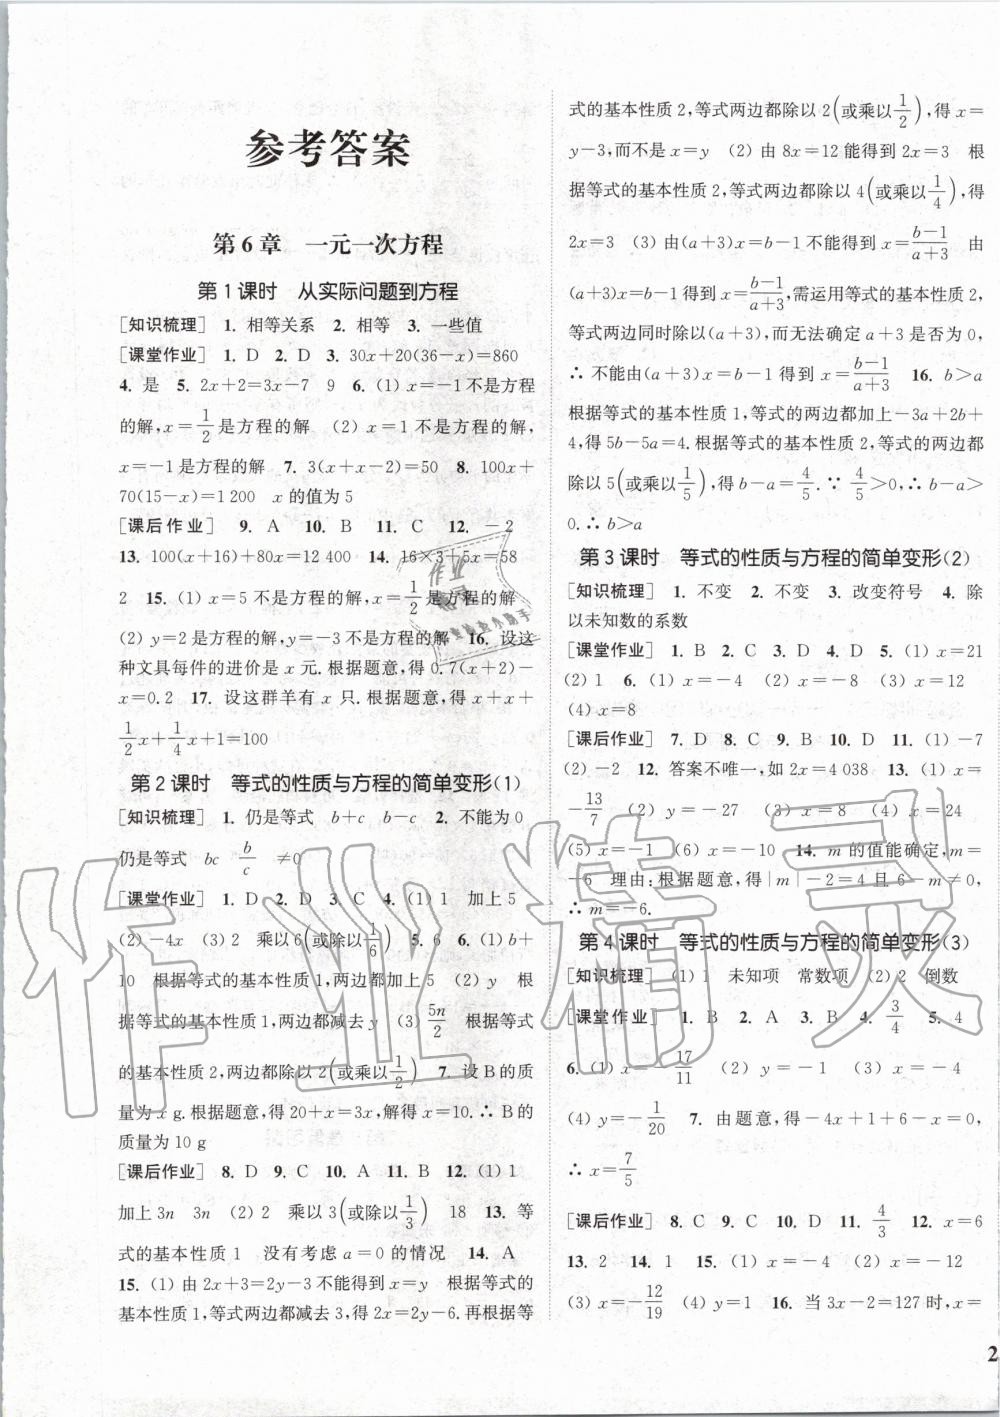 参考答案
第6章　一元一次方程
第1课时　从实际问题到方程
[知识梳理]　1. 相等关系　2. 相等　3. 一些值
[课堂作业]　1. D　2. D　3. 30x+20(36-x)=860
4. 是　5. 2x+2=3x-7　9　6. (1) x=-1不是方程
的解,x=1/2是方程的解　(2) x=1不是方程的解,
x=-1是方程的解　7. 3(x+x-2)=50　8. 100x+
70(15-x)=1 200　x的值为5
[课后作业]　9. A　10. B　11. C　12. -2
13. 100(x+16)+80x=12 400　14. 16×3+5x=58
2　15. (1) x=5不是方程的解,x=1/2是方程的解
(2) y=2是方程的解,y=-3不是方程的解　16. 设这
种文具每件的进价是x元.根据题意,得0.7(x+2)-
x=0.2　17. 设这群羊有x只.根据题意,得x+x+
1/2x+1/4x+1=100
第2课时　等式的性质与方程的简单变形(1)
[知识梳理]　1. 仍是等式　b+c　b-c　2. 不能为0
仍是等式　bc　b/c　≠0
[课堂作业]　1. D　2. D　3. C　4. (1) 1　加上5
(2) -4x　(3) 2　乘以6(或除以1/6)　5. 6　6. (1) b+
10　根据等式的基本性质1,两边都加上5　(2) y　根
据等式的基本性质1,两边都减去y　(3) 5n/2　根据等式
的基本性质2,两边都除以2(或乘以1/2)　7. 设B的质
量为x g.根据题意,得20+x=3x,解得x=10.∴B的
质量为10 g
[课后作业]　8. D　9. C　10. A　11. B　12. (1) 1
加上3n　3n　(2) 2　乘以3(或除以1/3)　18　13. 等
式的基本性质1　没有考虑a=0的情况　14. A
15. (1) 由2x+3=2y-3不能得到x=y　根据等式的
基本性质1,等式两边都减去3,得2x=2y-6.再根据等
式的基本性质2,等式两边都除以2(或乘以1/2),得x=
y-3,而不是x=y　(2) 由8x=12能得到2x=3　根
据等式的基本性质2,等式两边都除以4(或乘以1/4),得
2x=3　(3) 由(a+3)x=b-1不能得到x=(b-1)/(a+3)　由
(a+3)x=b-1得到x=(b-1)/(a+3),需运用等式的基本性质2,
等式两边同时除以(a+3),而无法确定a+3是否为0,
∴不能由(a+3)x=b-1得到x=(b-1)/(a+3)　16. b>a
根据等式的基本性质1,等式的两边都加上-3a+2b+
4,得5b-5a=4.根据等式的基本性质2,等式的两边都
除以5(或乘以1/5),得b-a=4/5.∵4/5>0,∴b-a>
0.∴b>a
第3课时　等式的性质与方程的简单变形(2)
[知识梳理]　1. 不变　2. 不变　3. 改变符号　4. 除
以未知数的系数
[课堂作业]　1. B　2. C　3. D　4. D　5. (1) x=21
(2) 1　6. (1) x=-4　(2) x=-8　(3) x=12
(4) x=8
[课后作业]　7. D　8. C　9. B　10. D　11. (1) -7
(2) -2　12. 答案不唯一,如2x=4 038　13. (1) x=
-13/7　(2) y=-27　(3) x=8　(4) x=24
(5) x=-1　(6) x=-10　14. m的值能确定,m=
-6　理由:根据题意,得|m|-2=4且6-m≠0,
∴m=-6.
第4课时　等式的性质与方程的简单变形(3)
[知识梳理]　(1) 1　未知项　常数项　(2) 2　倒数
[课堂作业]　1. B　2. A　3. B　4. 3/4　5. 4
6. (1) x=17/11　(2) y=-1　(3) x=-4
(4) y=-1/20　7. 由题意,得-4x+1+6-x=0,
∴x=7/5
[课后作业]　8. C　9. C　10. D　11. 4/3　12. x=6
13. 2　14. 1　15. (1) x=-4　(2) x=-12
(3) x=-12/19　(4) y=1　16. 当3x-2=127时,x=
2
作业精灵